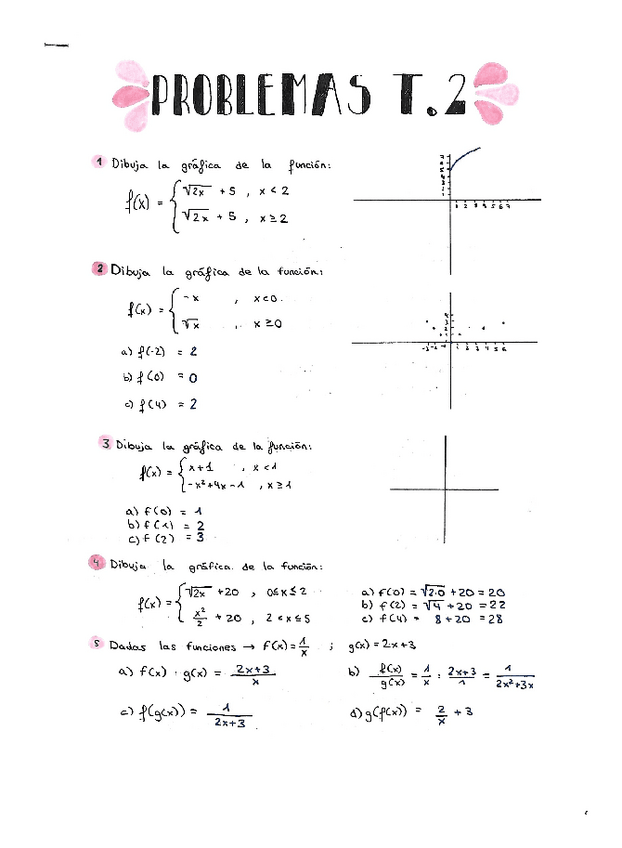 PROBLEMAS T.2
1 Dibuja la gráfica de la función:
f(x) = { √2x + 5 , x < 2
√2x + 5 , x ≥ 2
1 2 3 4 5 6 7
2 Dibuja la gráfica de la función:
f(x) = { -x , x<0.
√x , x ≥0
a) f(-2) = 2
b) f(0) = 0
c) f(4) = 2
-3 -2 -1 1 2 3 4 5 6
3 Dibuja la gráfica de la función:
f(x) = { x+1 , x <1
-x²+4x-1 , x≥1
a) f(0) = 1
b) f(1) = 2
c) f(2) = 3
4 Dibuja la gráfica de la función:
f(x) = { √2x +20 , 0≤x≤2
x²/2 + 20 , 2<x≤5
a) f(0) = √2·0 +20 = 20
b) f(2) = √4 +20 = 22
c) f(4) = 8+20 = 28
5 Dadas las funciones → f(x)=1/x ; g(x)=2x+3
a) f(x) · g(x) = 2x+3/x
b) f(x)/g(x) = 1/x : 2x+3/1 = 1/2x²+3x
c) f(g(x)) = 1/2x+3
d) g(f(x)) = 2/x + 3